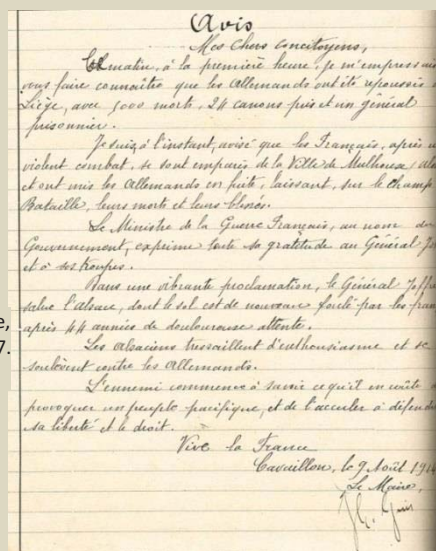 Avis
Mes Chers concitoyens,
Ce matin, à la première heure, je m'empressais
vous faire connaître que les Allemands ont été repoussés
Liège, avec 5000 morts, 24 canons pris et un général
prisonnier.
Je suis, à l'instant, avisé que les Français, après
violent combat, se sont emparés de la Ville de Mulhouse
et ont mis les Allemands en fuite, laissant, sur le Champ
Bataille, leurs morts et leurs blessés.
Le Ministre de la Guerre Français, au nom du
Gouvernement, exprime toute sa gratitude au Général
et à ses troupes.
Dans une vibrante proclamation, le Général Joffre
salue l'Alsace, dont le sol est de nouveau foulé par les
après 44 années de douloureuse attente.
Les Alsaciens tressaillent d'enthousiasme et se
soulèvent contre les Allemands.
L'ennemi commence à savoir ce qu'il en coûte
provoquer un peuple pacifique, et de l'acculer à défendre
sa liberté et le droit.
Vive la France
Cavaillon, le 9 Août
Le Maire,
e,
7.